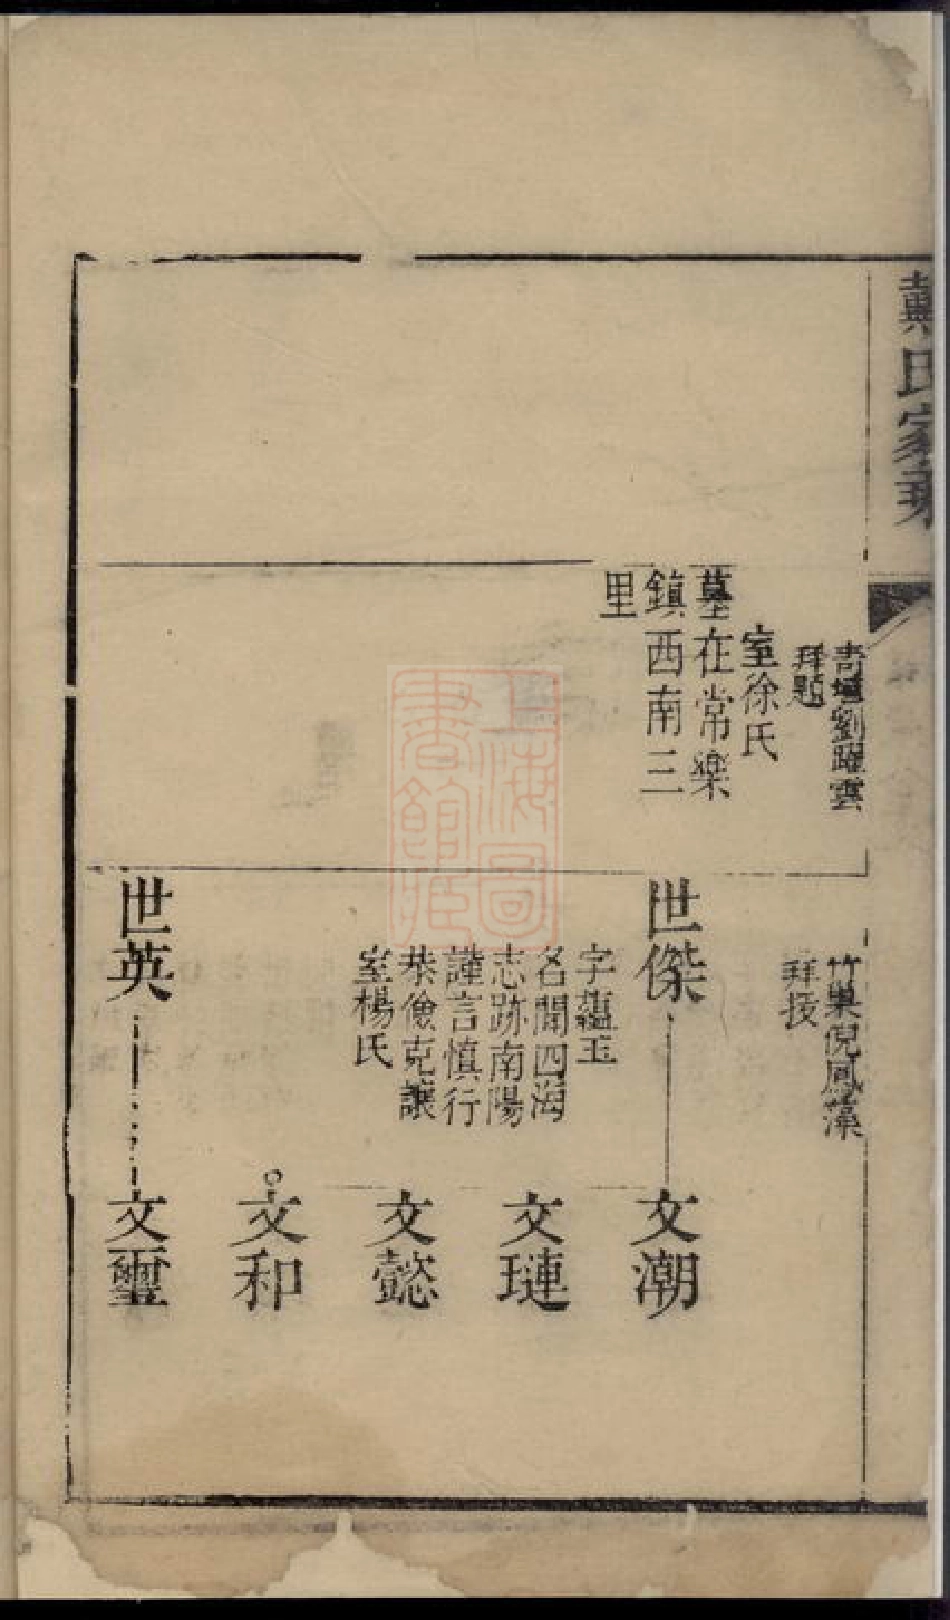 戴氏家乘
劉躍雲
拜題
室徐氏
墓在常樂
鎮西南三
里
竹巢倪鳳藻
拜撰
世傑
字蘊玉
名聞四海
志跡南陽
謹言慎行
恭儉克讓
室楊氏
世英
文潮
文璉
文懿
文和
文璽
上海圖
書館藏